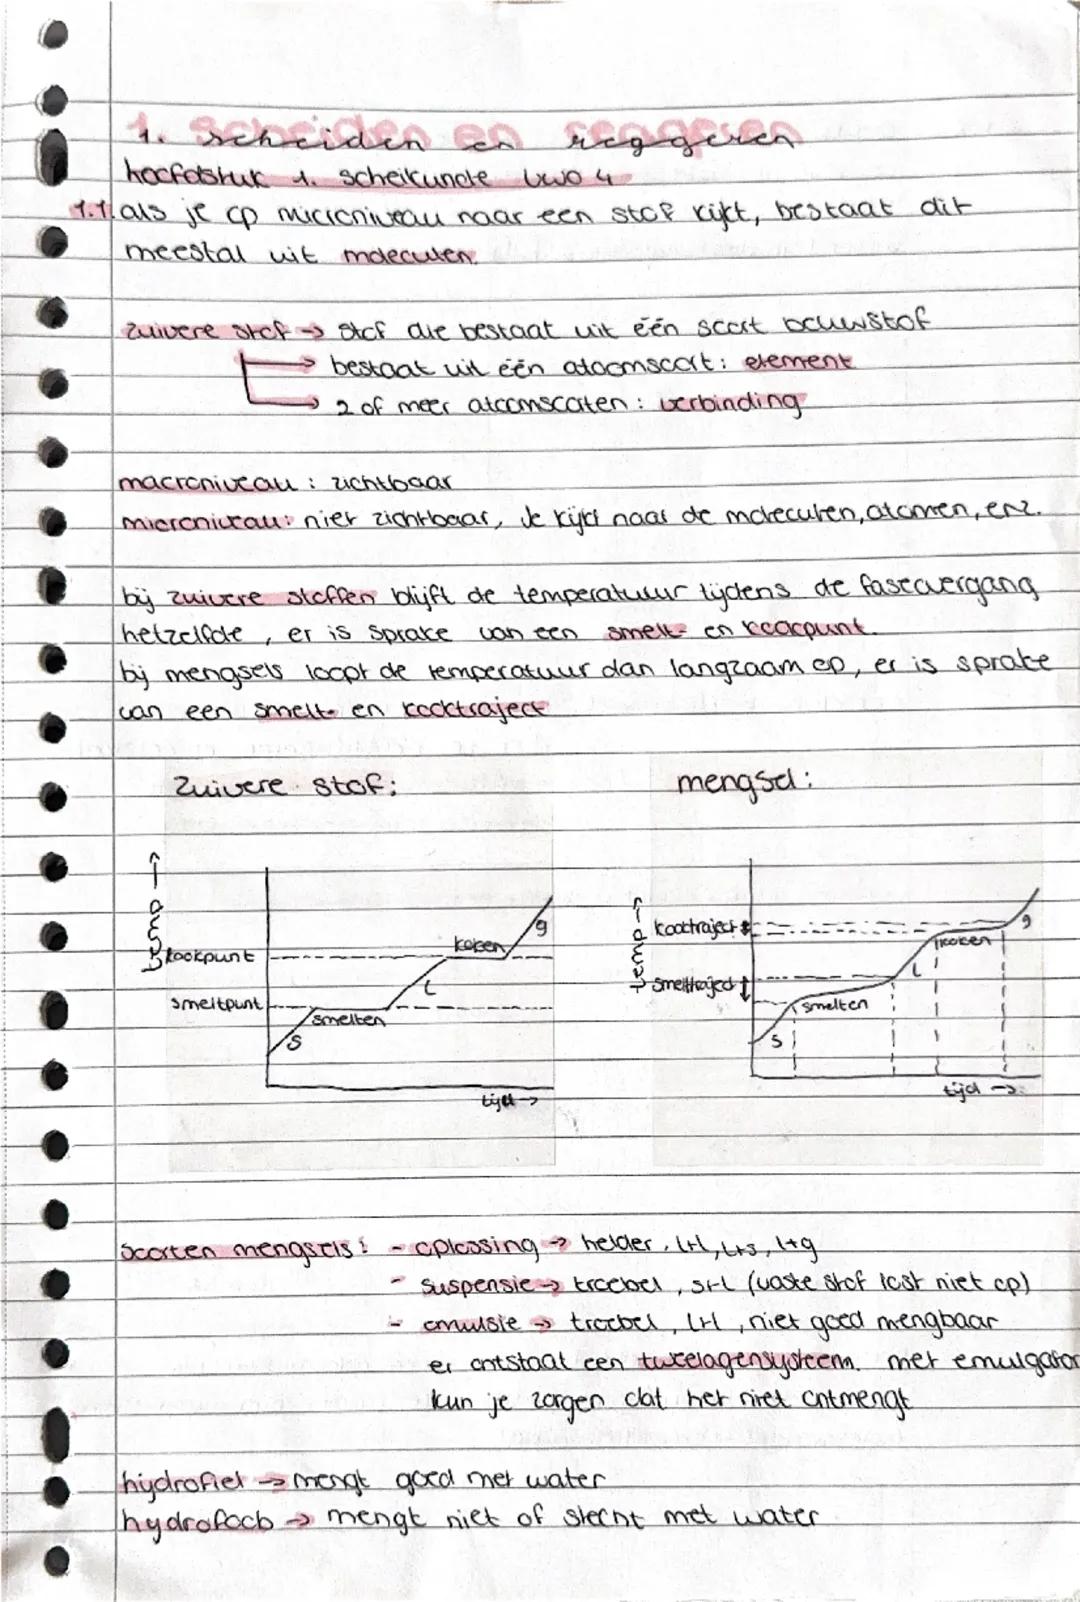 1. scheiden en reageren
hoofdstuk 1. scheikunde vwo 4
1.1. als je op microniveau naar een stof kijkt, bestaat dit
meestal uit moleculen.
zuivere stof → stof die bestaat uit één soort bouwstof
→ bestaat uit één atoomsoort: element
→ 2 of meer atoomsoorten : verbinding
macroniveau : zichtbaar
microniveau: niet zichtbaar, je kijkt naar de moleculen, atomen, enz.
bij zuivere stoffen blijft de temperatuur tijdens de faseovergang
hetzelfde, er is sprake van een smelt- en kookpunt.
bij mengsels loopt de temperatuur dan langzaam op, er is sprake
van een smelt- en kooktraject
Zuivere stof:
temp →
kookpunt
smeltpunt
s
smelten
l
koken
g
tijd →
mengsel:
temp →
kooktraject
smelttraject
s
smelten
l
koken
g
tijd →
soorten mengsels: - oplossing → helder, l+l, l+s, l+g
- suspensie → troebel, s+l (vaste stof lost niet op)
- emulsie → troebel, l+l, niet goed mengbaar
er ontstaat een tweelagensysteem. met emulgator
kun je zorgen dat het niet ontmengt
hydrofiel → mengt goed met water
hydrofoob → mengt niet of slecht met water